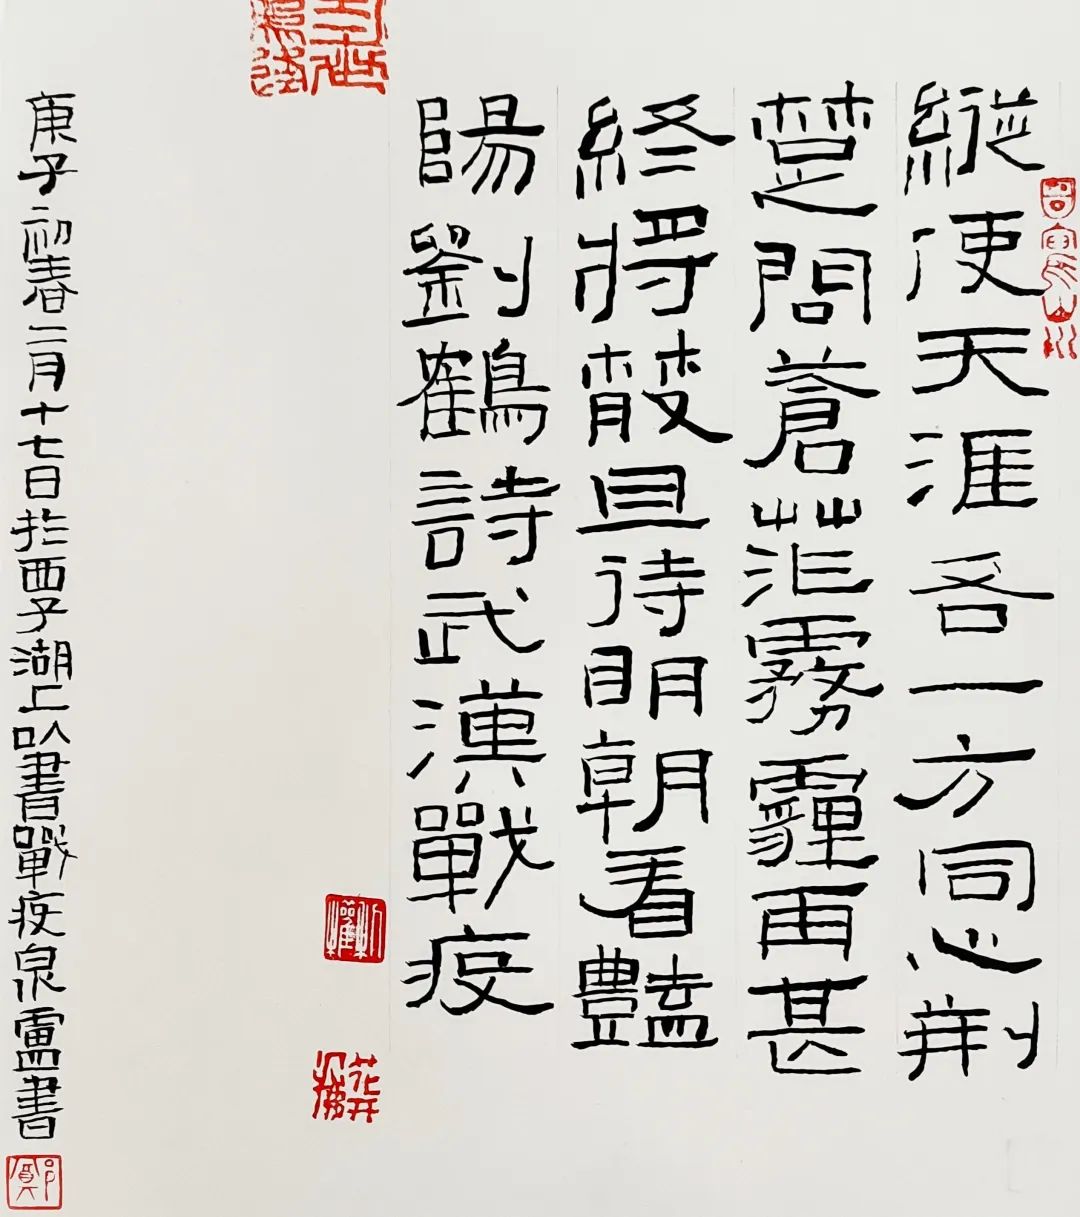 縱使天涯各一方同心荆
楚問蒼茫霧霾再甚
終將散且待眀朝看豔
陽劉鶴詩武漢戰疫
庚子初春二月十七日於西子湖上以書戰疫泉盧書
鄭